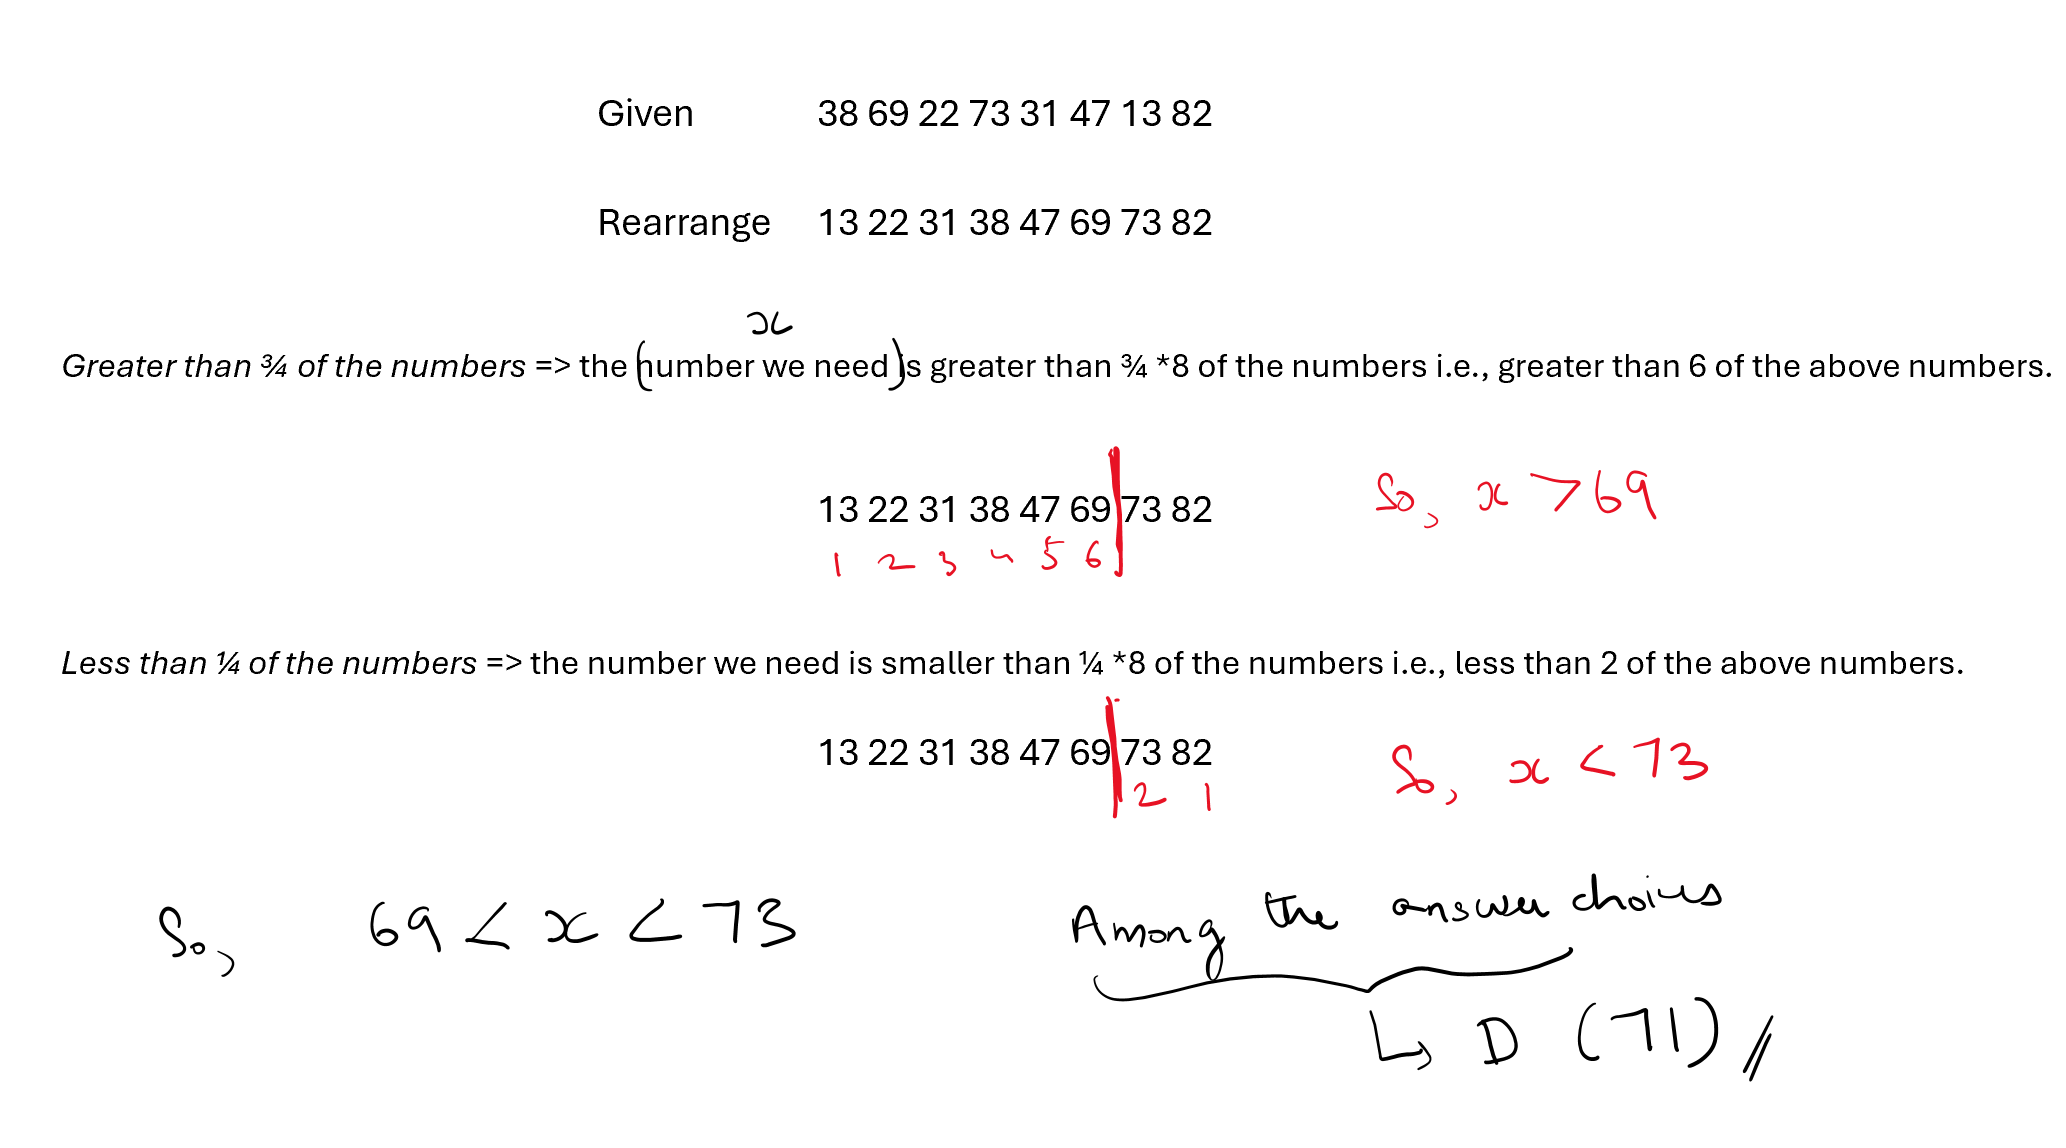 Given 38 69 22 73 31 47 13 82
Rearrange 13 22 31 38 47 69 73 82
x
Greater than ¾ of the numbers => the (number we need) is greater than ¾ *8 of the numbers i.e., greater than 6 of the above numbers.
13 22 31 38 47 69 73 82 So, x > 69
1 2 3 4 5 6
Less than ¼ of the numbers => the number we need is smaller than ¼ *8 of the numbers i.e., less than 2 of the above numbers.
13 22 31 38 47 69 73 82 So, x < 73
2 1
So, 69 < x < 73 Among the answer choices
↳ D (71) //